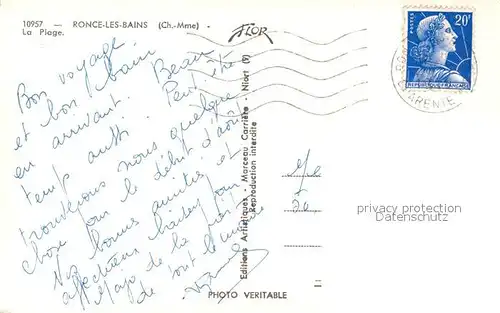 10957 — RONCE-LES-BAINS (Ch.-Mme)
La Plage.
FLOR
20F
REPUBLIQUE FRANÇAISE
CHARENTE
Bon voyage
et bon bain
en arrivant. Beau
temps aussi. Peut être
trouverons nous quelque
chose pour le début d'août
Nos bonnes amitiés et
affectueux baisers pour
de la part
de tout le monde
Editions Artistiques - Marceau Carrière - Niort (9)
Reproduction interdite
privacy protection
Datenschutz
PHOTO VERITABLE